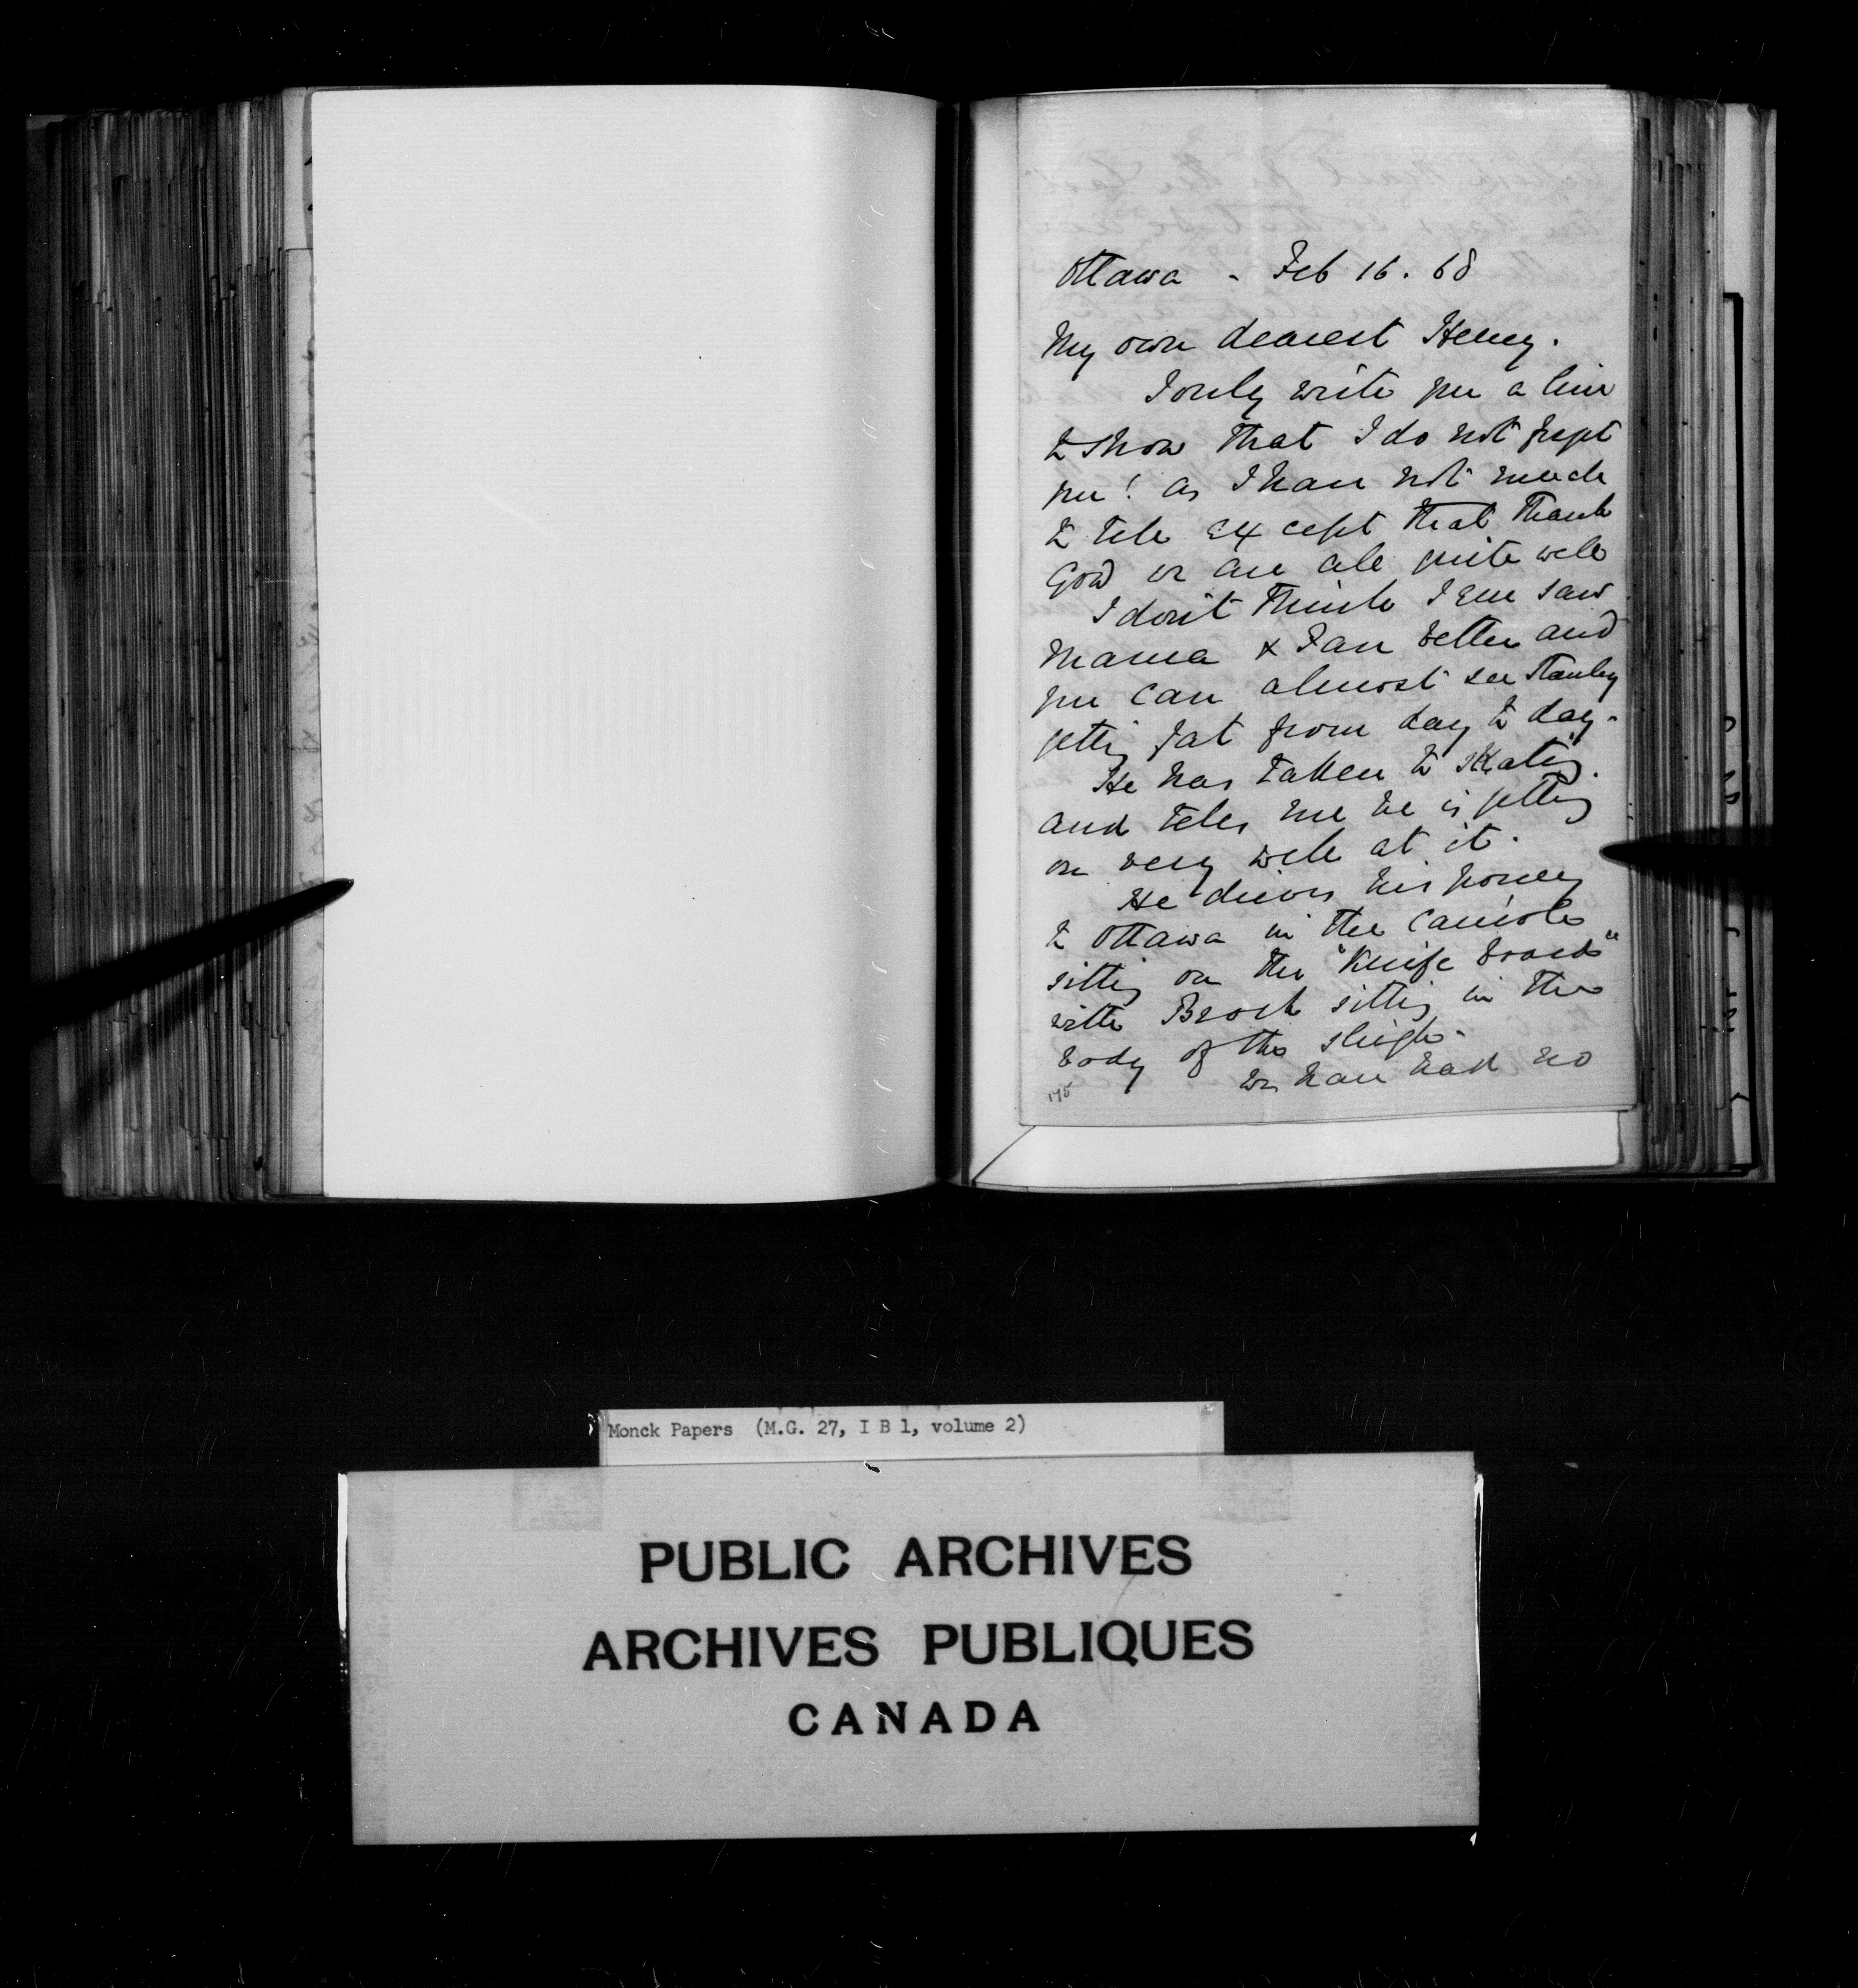 Ottawa - Feb 16. 68
My own dearest Henry.
I only write you a line
to show that I do not forget
you! as I have not much
to tell except that Thank
God we are all quite well
I don't think I ever saw
Mama & Fan better and
you can almost see Stanley
getting fat from day to day.
He has taken to skating.
and tells me he is getting
on very well at it.
He drives his poney
to Ottawa in the Cariole
sitting on the "Knife board"
with Brock sitting in the
body of the sleigh.
We have had no
175
Monck Papers (M.G. 27, I B 1, volume 2)
PUBLIC ARCHIVES
ARCHIVES PUBLIQUES
CANADA